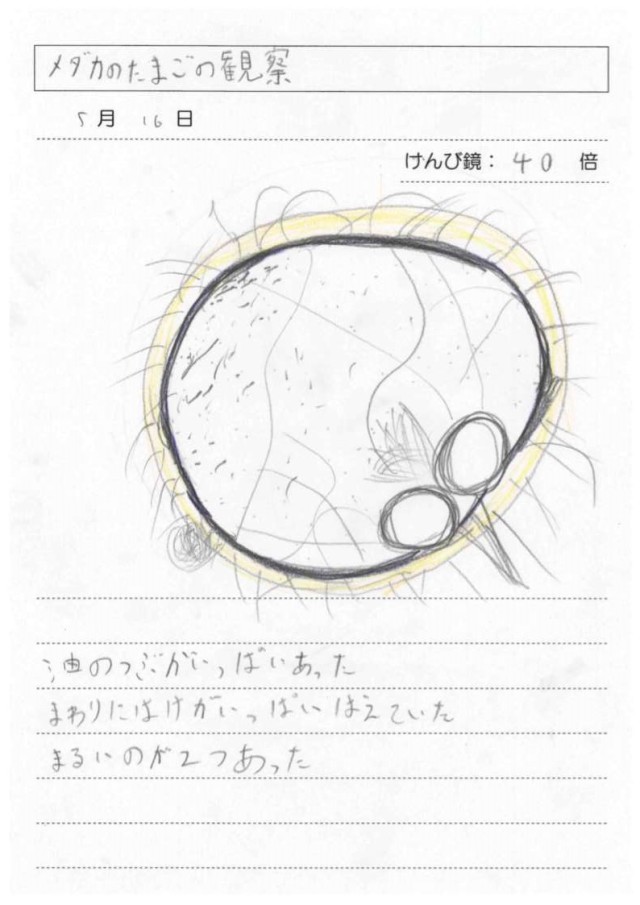 メダカのたまごの観察
5月 16日
けんび鏡： 40 倍
油のつぶがいっぱいあった
まわりにはけがいっぱいはえていた
まるいのが2つあった